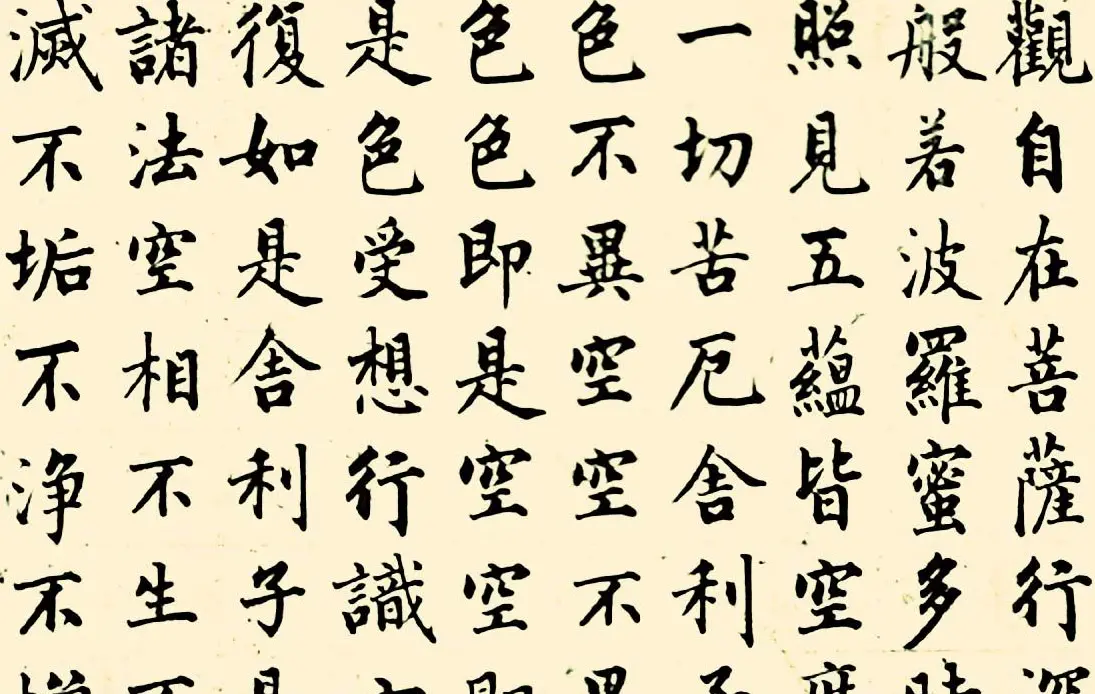 觀自在菩薩行深
般若波羅蜜多時
照見五蘊皆空度
一切苦厄舍利子
色不異空空不異
色色即是空空即
是色受想行識亦
復如是舍利子是
諸法空相不生不
滅不垢不淨不增